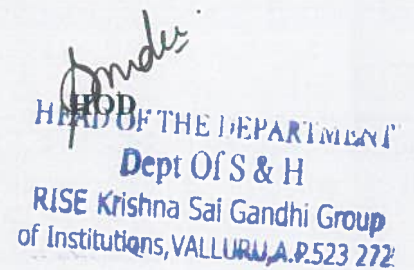 HOD
HEAD OF THE DEPARTMENT
Dept Of S & H
RISE Krishna Sai Gandhi Group
of Institutions, VALLURU, A.P.523 272